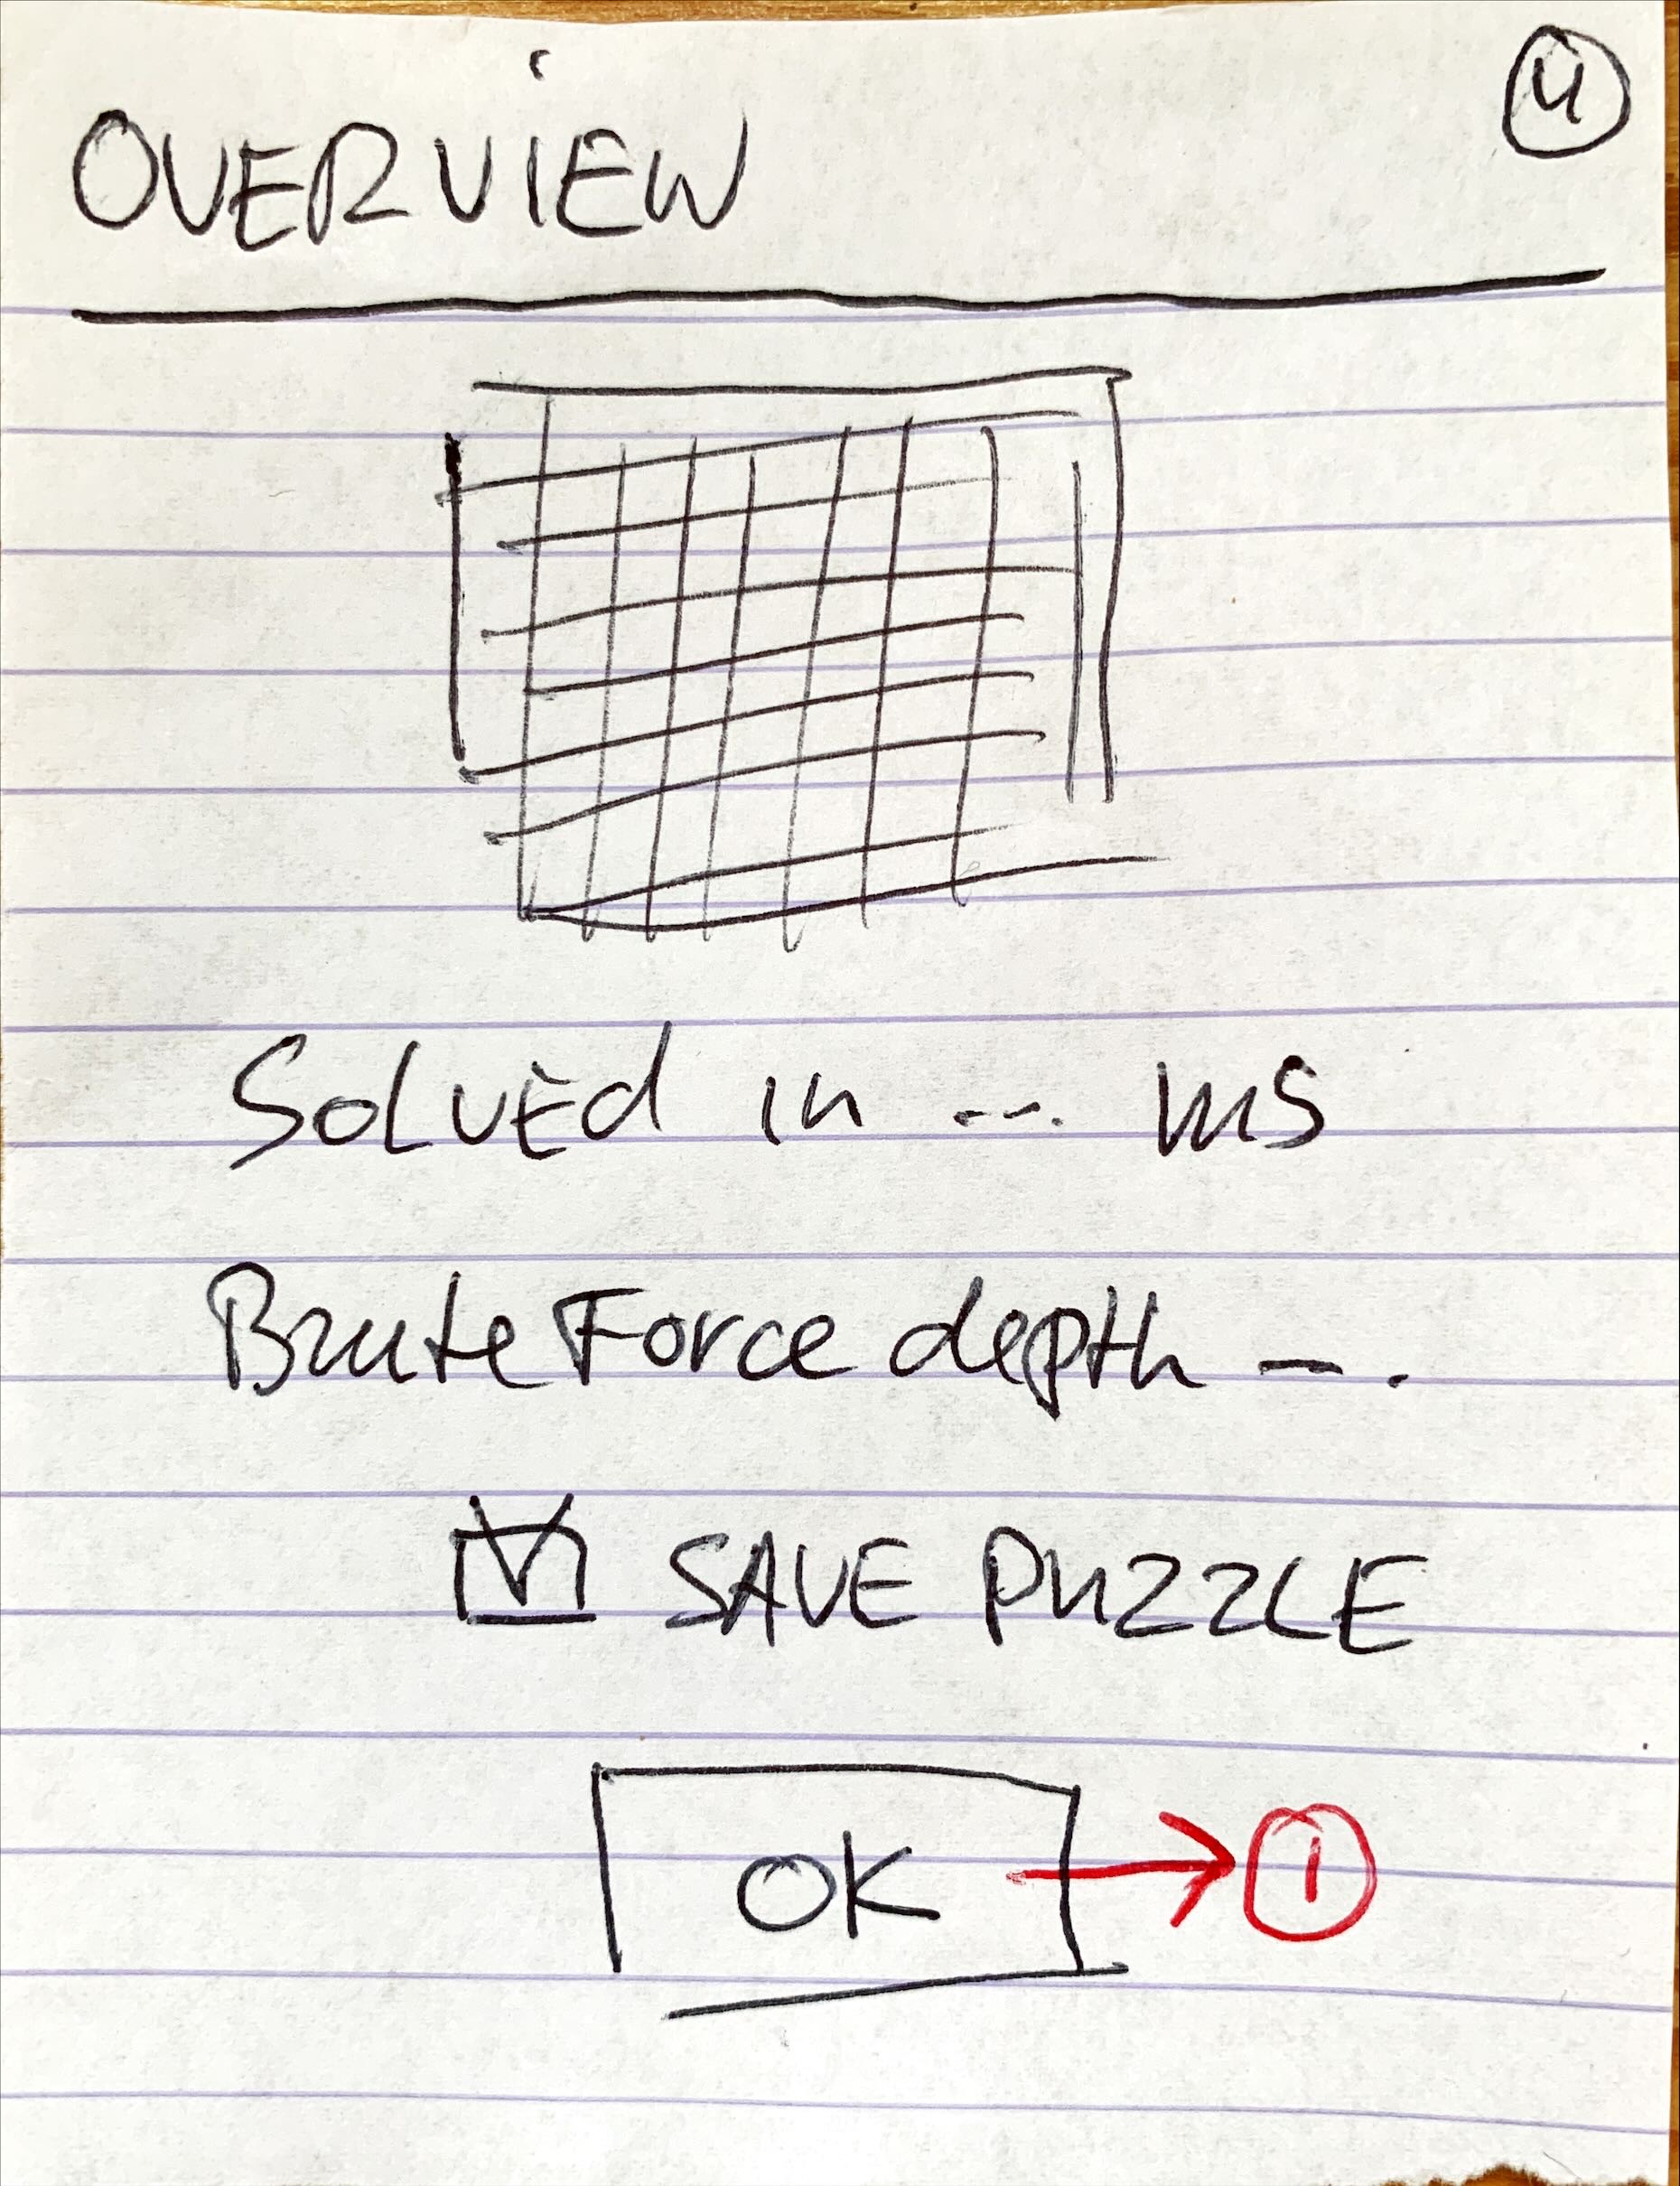 OVERViEW
4
Solved in --. ms
BruteForce depth -.
SAVE PUZZLE
OK
1